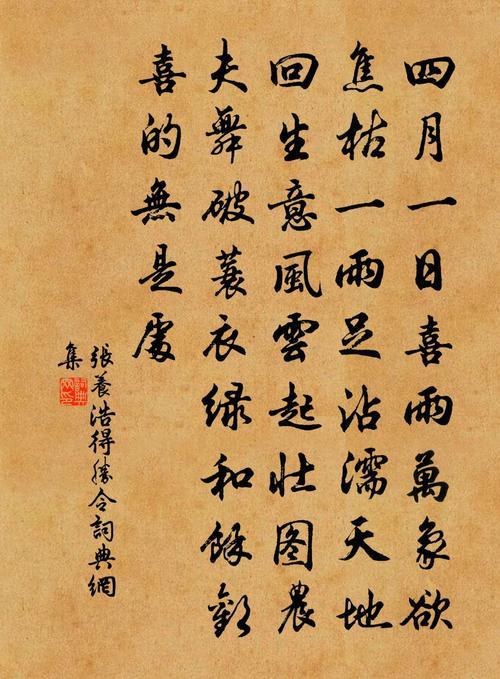 四月一日喜雨萬象欲
焦枯一雨足沾濡天地
回生意風雲起壯圖農
夫舞破蓑衣綠和餘歡
喜的無是處
張養浩得勝令詞典網
集